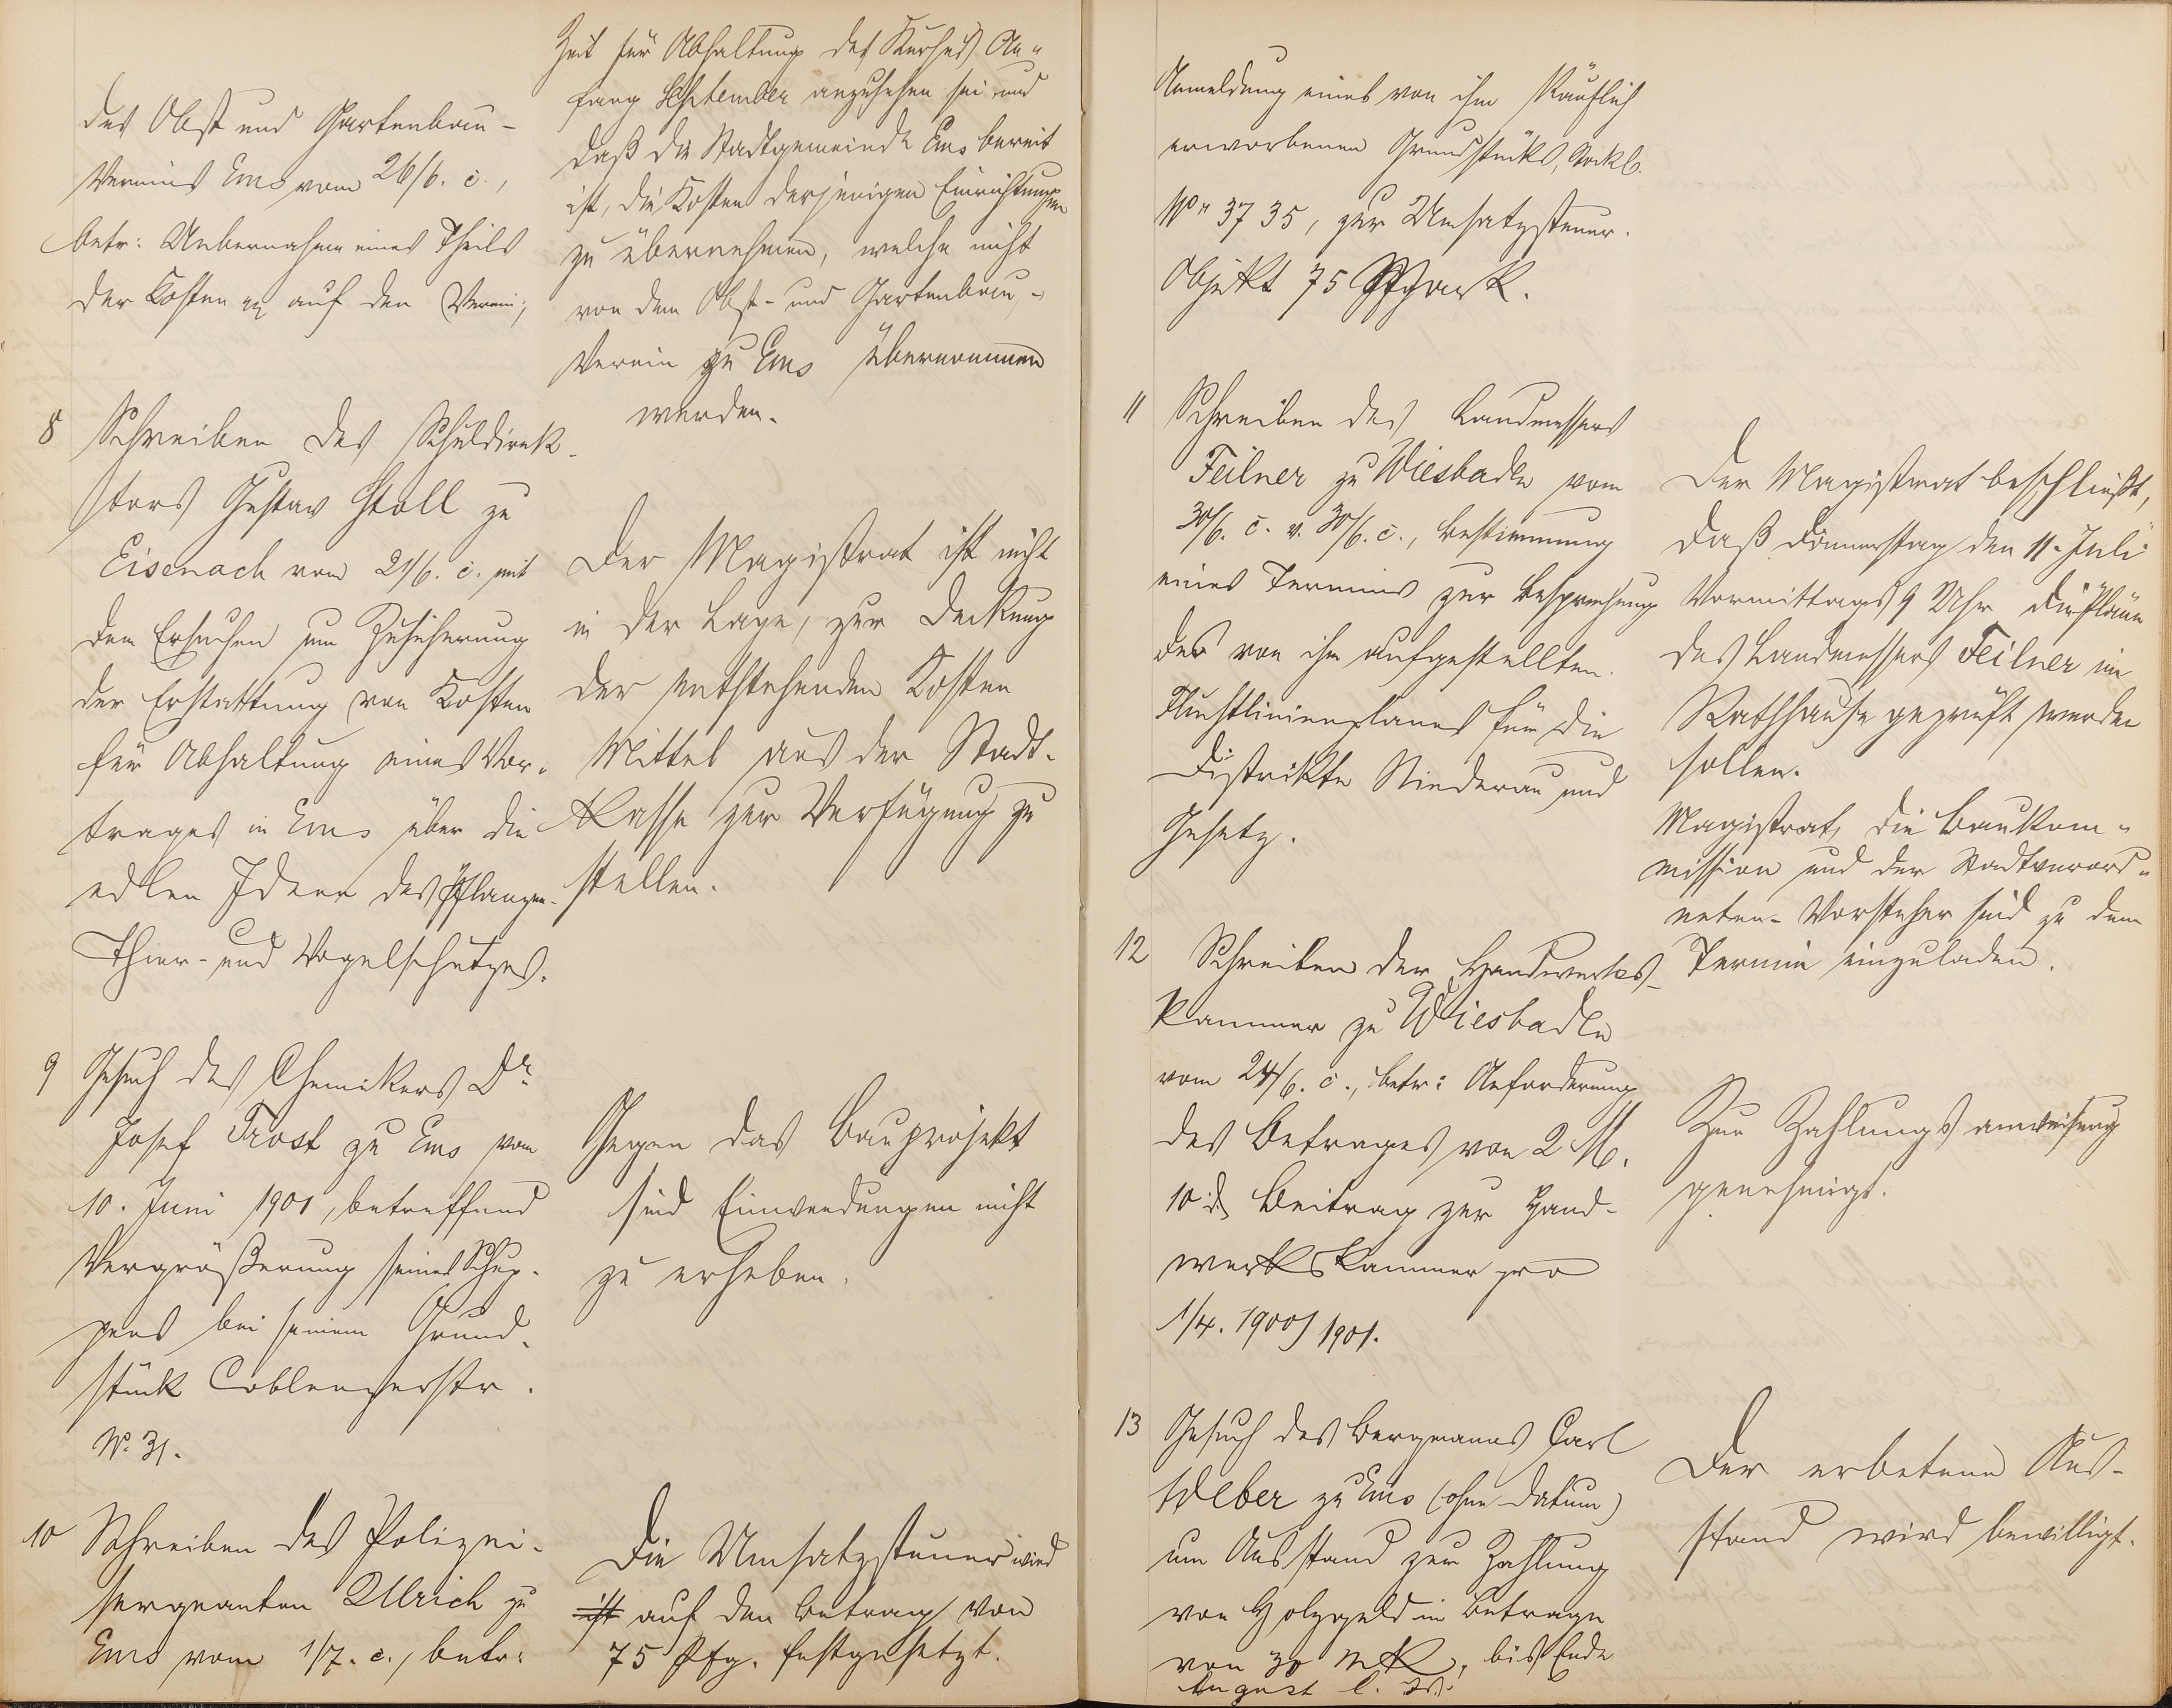 des Obst und Gartenbau-
Vereins Ems vom 26/6. c.,
betr: Uebernahme eines Theils
der Kosten auf den Verein;
8 Schreiben des Schuldirek-
tors Gustav Stoll zu
Eisenach vom 21/6. c. mit
dem Ersuchen um Zusicherung
der Erstattung von Kosten
für Abhaltung eines Vor-
trages in Ems über die
edlen Ideen des Pflanzen-
Thier- und Vogelschutzes.
9 Gesuch des Chemikers Dr.
Josef Trost zu Ems vom
10. Juni 1901, betreffend
Vergrößerung seines Schup-
pens bei seinem Grund-
stück Coblenzerstr.
No. 31.
10 Schreiben des Polizei-
sergeanten Ullrich zu
Ems vom 1/7. c., betr:
Zeit für Abhaltung des An-
fang September anzusehen sei und
daß die Stadtgemeinde Ems bereit
ist, die Kosten derjenigen Einrichtungen
zu übernehmen, welche nicht
von dem Obst- und Gartenbau-
Verein zu Ems übernommen
werden.
Der Magistrat ist nicht
in der Lage, zur Deckung
der entstehenden Kosten
Mittel aus der Stadt-
kasse zur Verfügung zu
stellen.
Gegen das Bauprojekt
sind Einwendungen nicht
zu erheben.
Die Umsatzsteuer wird
ist auf den Betrag von
75 Pfg. festgesetzt.
Anmeldung eines von ihm käuflich
erworbenen Grundstücks, Stockb.
No 3735, zur Umsatzsteuer.
Objekt 75 Mark.
11 Schreiben des Landmessers
Feilner zu Wiesbaden vom
30/6. c. v. 30/6. c., Bestimmung
eines Termins zur Besprechung
des von ihm aufgestellten
Fluchtlinienplanes für die
Distrikte Niederau und
Gesetz.
12 Schreiben der Handwerks-
kammer zu Wiesbaden
vom 24/6. c., betr: Anforderung
des Betrages von 2 M.
10 d Beitrag zur Hand-
werkskammer pro
1/4. 1900/1901.
13 Gesuch des Bergmanns Carl
Weber zu Ems (ohne Datum)
um Ausstand zur Zahlung
von Holzgeld im Betrage
von 30 Mk, bis Ende
August l. Js.
Der Magistrat beschließt,
daß Donnerstag den 11. Juli
Vormittags 9 Uhr die Pläne
des Landmessers Feilner im
Rathhause geprüft werden
sollen.
Magistrat, die Baukom-
mission und der Stadtverord-
neten-Vorsteher sind zu dem
Termin einzuladen.
Zur Zahlungsanweisung
genehmigt.
Der erbetene Aus-
stand wird bewilligt.